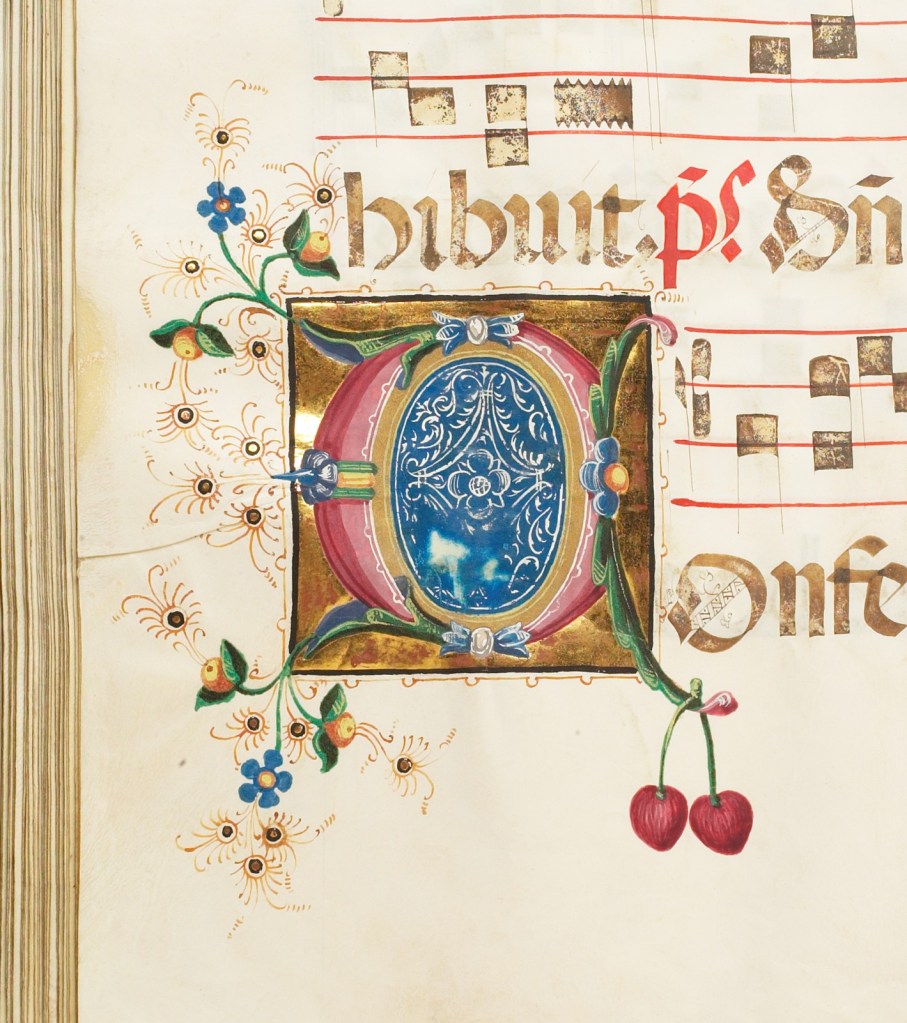 hibuit. p̄ſ. Dn̄
COnfe